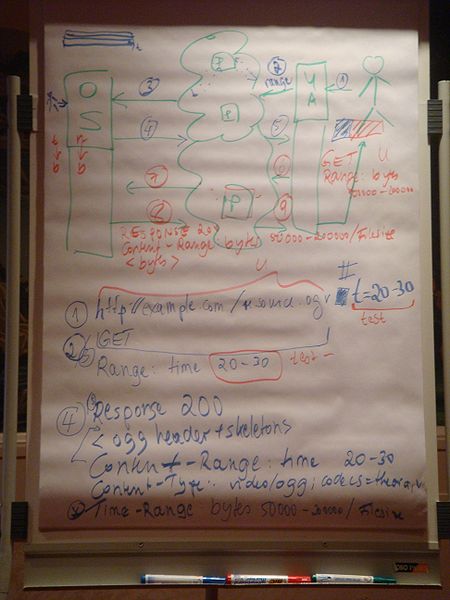 t
3
P
2
range
U
A
1
O
S
P
4
5
t
b
b
GET
U
Range: bytes
50000-200000
7
6
P
8
9
RESPONSE 20
Content-Range bytes 50000-200000/Filesize
<bytes>
U
#
t=20-30
test
1 http://example.com/resource.ogv
2/5 GET
Range: time 20-30
4 Response 200
<ogg header+skeleton>
Content-Range: time 20-30
Content-Type: video/ogg; codecs=theora, v
Time-Range: bytes 50000-200000/Filesize